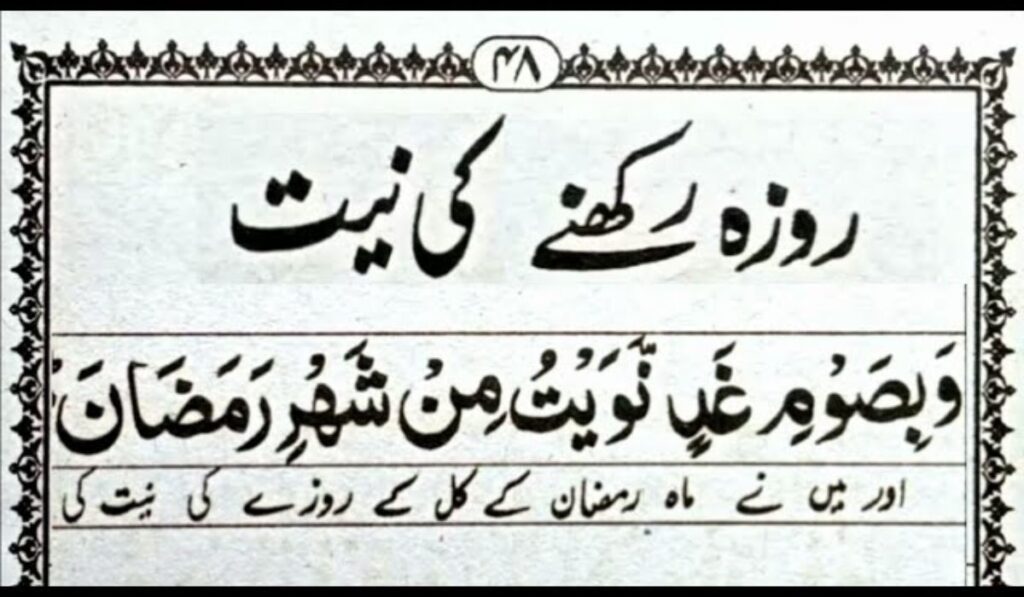 ۴۸
روزہ رکھنے کی نیت
وَبِصَوْمِ غَدٍ نَّوَيْتُ مِنْ شَهْرِ رَمَضَانَ
اور میں نے ماہ رمضان کے کل کے روزے کی نیت کی